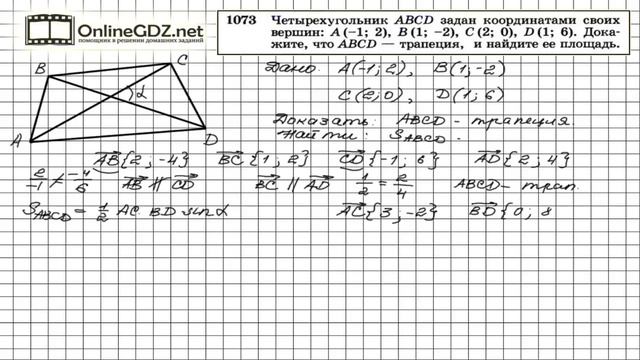 OnlineGDZ.net
помощник в решении домашних заданий
1073 Четырехугольник ABCD задан координатами своих
вершин: A (−1; 2), B (1; −2), C (2; 0), D (1; 6). Дока-
жите, что ABCD — трапеция, и найдите ее площадь.
Дано. A(-1;2), B(1;-2)
C(2;0), D(1;6)
Доказать: ABCD - трапеция.
Найти: S ABCD -
B C α A D
AB{2;-4} BC{1;2} CD{-1;6} AD{2;4}
2/-1 ≠ -4/6 AB ∦ CD BC ∥ AD 1/2 = 2/4 ABCD - трап.
S ABCD = 1/2 AC BD sin α AC{3;-2} BD{0; 8